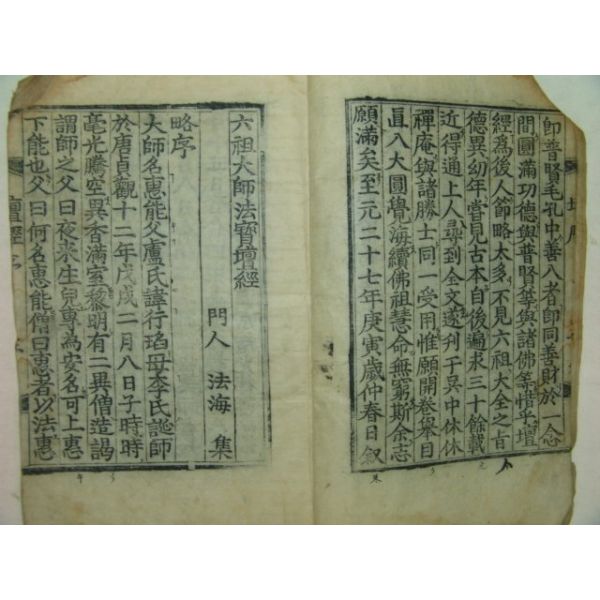 即普賢毛孔中善入者即同善財於一念
間圓滿功德與普賢等與諸佛等惜乎壇
經爲後人節略太多不見六祖大全之旨
德異幼年嘗見古本自後遍求三十餘載
近得通上人尋到全文遂刊于吳中休休
禪庵與諸勝士同一受用惟願開卷舉目
眞入大圓覺海續佛祖慧命無窮斯余志
願滿矣至元二十七年庚寅歲仲春日叙
六祖大師法寶壇經
門人 法海 集
略序
大師名惠能父盧氏諱行瑫母李氏誕師
於唐貞觀十二年戊戌二月八日子時時
毫光騰空異香滿室黎明有二異僧造謁
謂師之父曰夜來生兒專爲安名可上惠
下能也父曰何名惠能僧曰惠者以法惠
壇經序